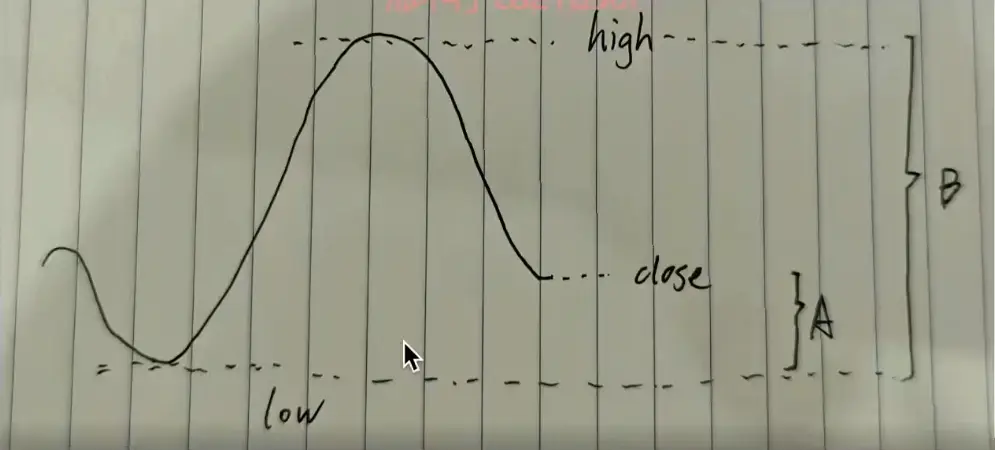 high
B
close
A
low